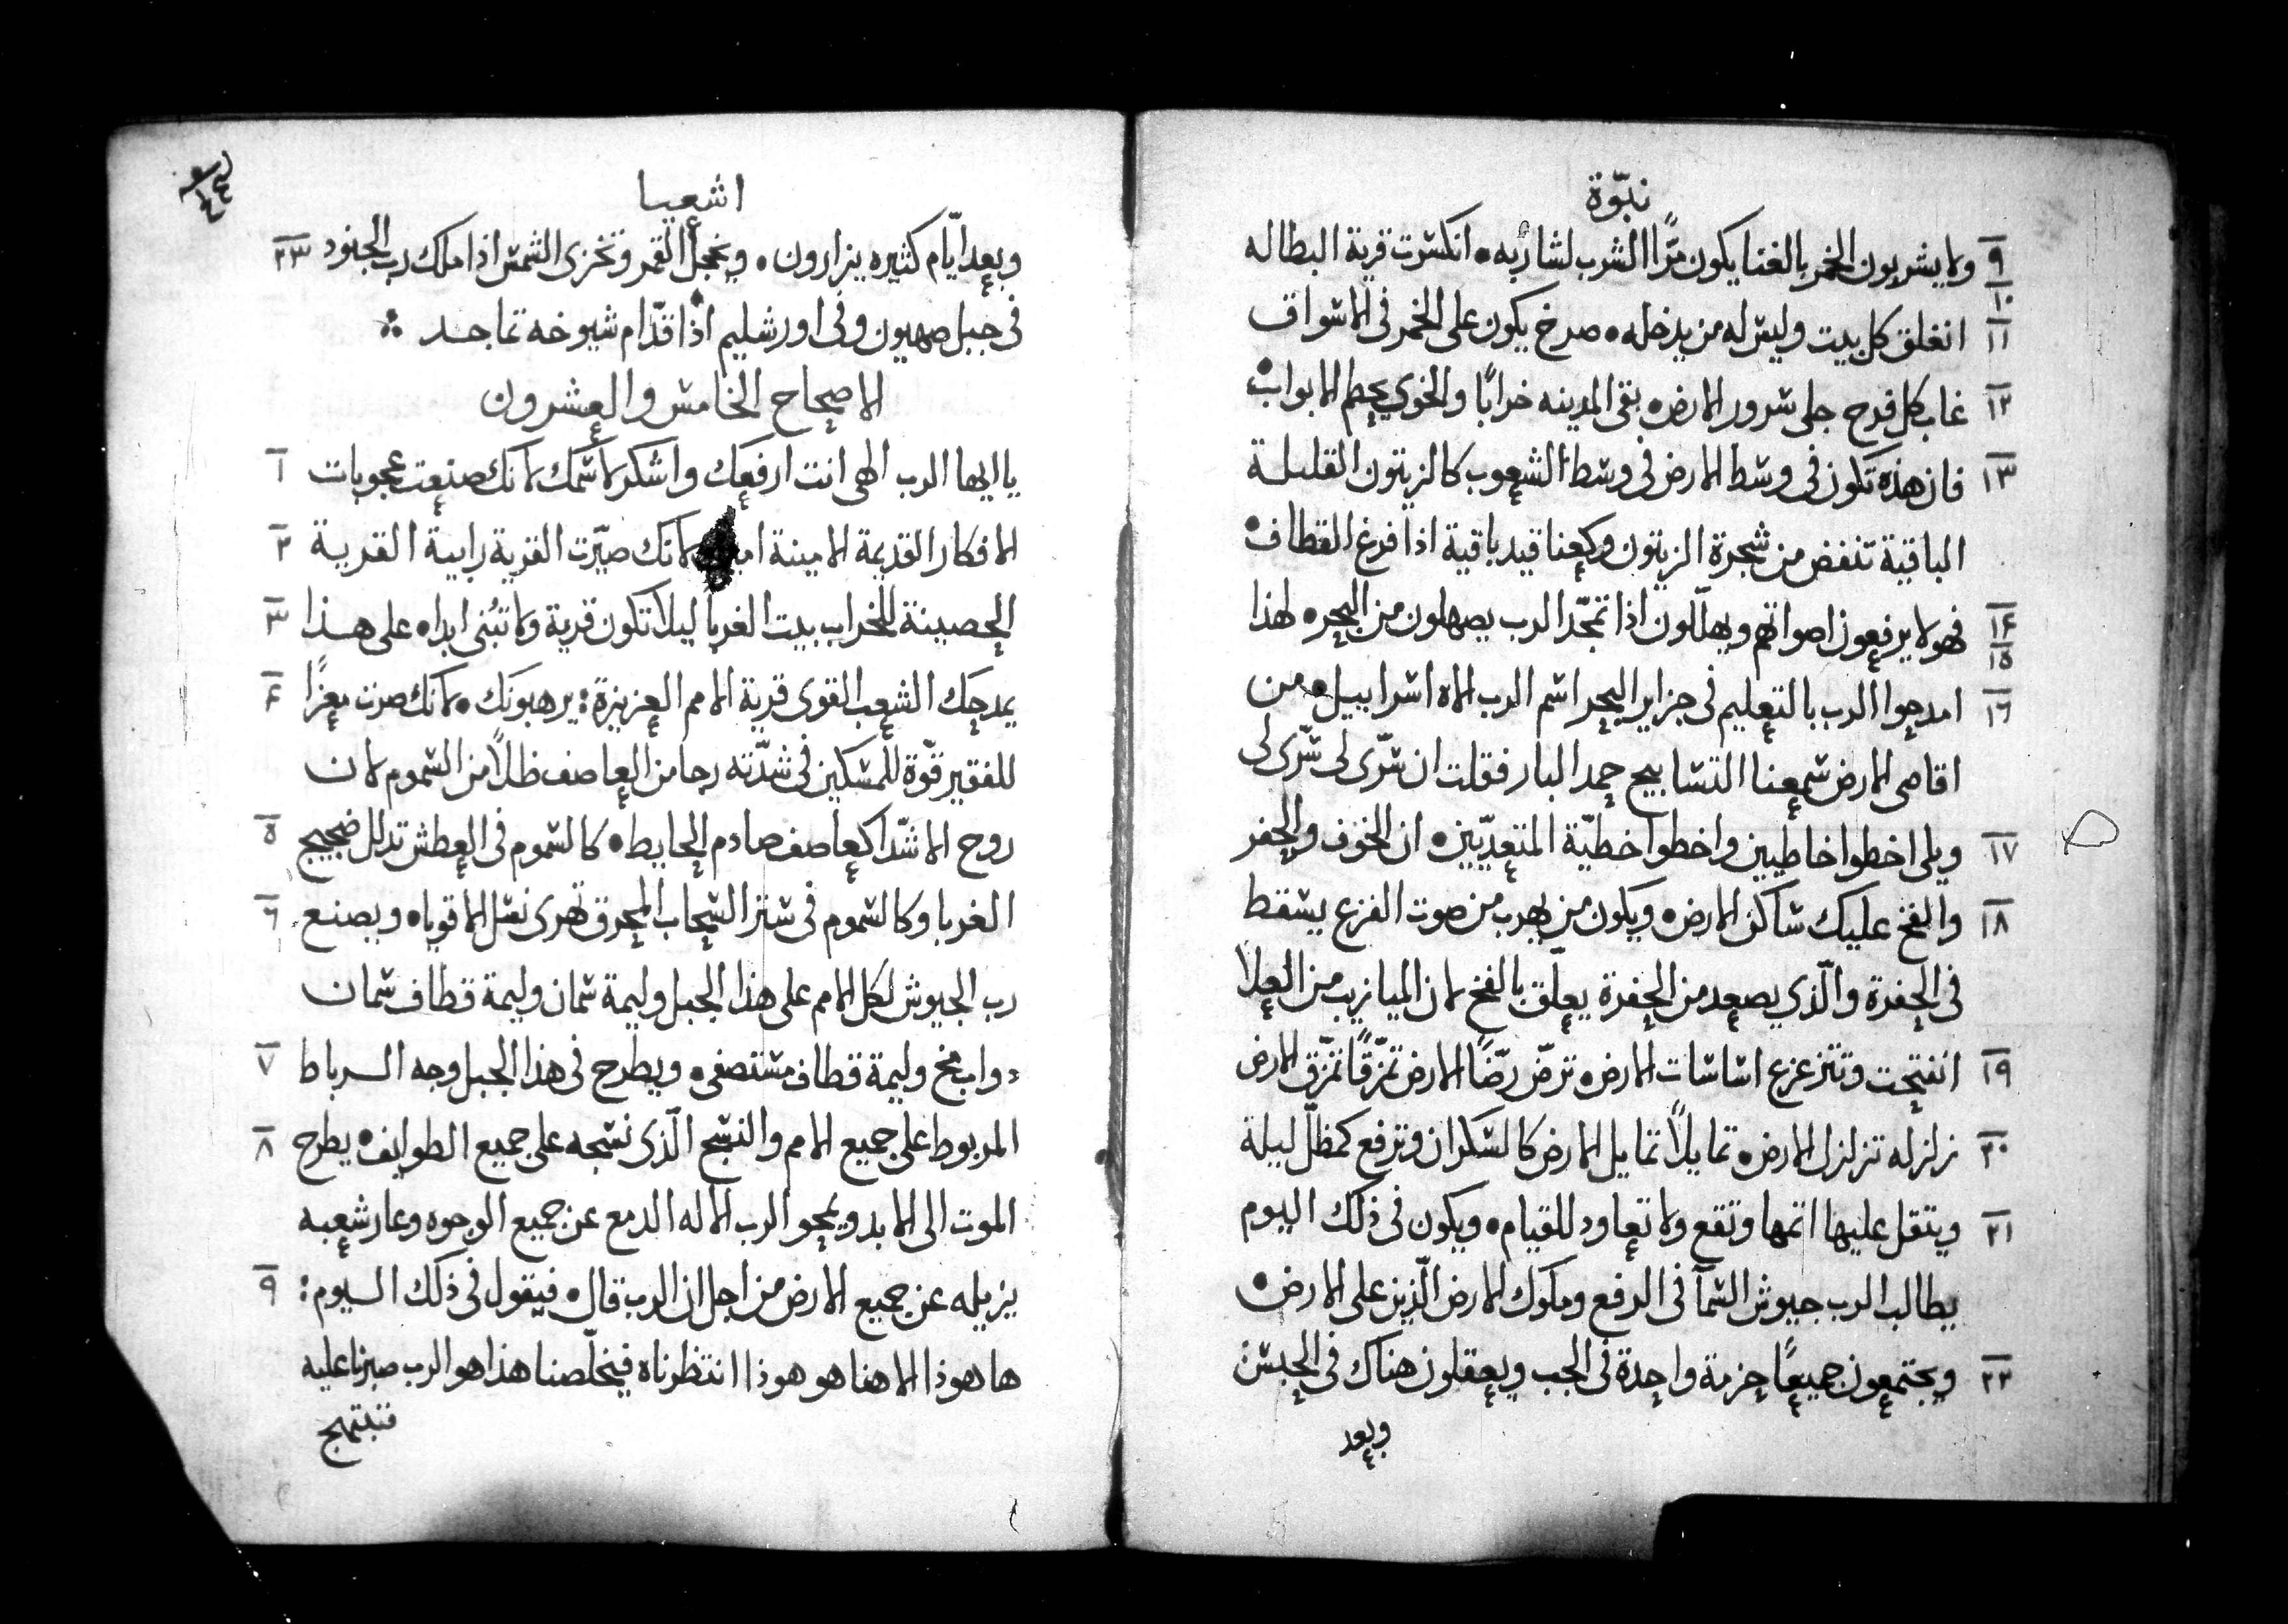 نبّوة
٩ ولا يشربون الخمر بالغنا يكون مرًّا الشرب لشاربه٠ انكسرت قرية البطاله
١٠ ١١ انغلق كل بيت وليس له من يدخله٠ صرخ يكون على الخمر فى الاسواق
١٢ غاب كل فرح جلى سرور الارض٠ بقى المدينه خرابًا والخوي يحطم الابواب٠
١٣ فان هذه تكون فى وسط الارض فى وسط الشعوب كالزيتون القليلة
الباقية تنفض من شجرة الزيتون وكعناقيد باقية اذا فرغ القطاف٠
١٤ ١٥ فهولا يرفعون اصواتهم ويهلّلون اذا تمجّد الرب يصهلون من البحر٠ لهذا
١٦ امدحوا الرب بالتعليم فى جزاير البحر اسم الرب الاه اسراييل٠ من
اقاصى الارض سمعنا التسابيح حمد البار فقلت ان سّرى لى سّرى لى
١٧ ويلى اخطوا خاطيين واخطوا خطيّة المتعدّيين٠ ان الخوف والحفر
١٨ والفخ عليك ساكن الارض٠ ويكون من يهرب من صوت الفزع يسقط
فى الحفرة والّذي يصعد من الحفرة يعلّق بالفخ لان الميازيب من العلا
١٩ انفتحت وتتزعزع اساسات الارض٠ ترضّ رضًّا الارض تمزّقًا تمزّق الارض
٢٠ زلزله تزلزل الارض٠ تمايلاً تمايل الارض كالسكران وترفع كمظلّ ليلة
٢١ ويتقل عليها اتمها وتقع ولا تعاود للقيام٠ ويكون فى ذلك اليوم
يطالب الرب جيوش السمآ فى الرفع وملوك الارض الّذين على الارض٠
٢٢ ويجتمعون جميعًا حزمة واحدة فى الجب ويعقلون هناك فى الحبس
وبعد
اشعيا
وبعد ايّام كثيره يزارون٠ ويخجل القمر وتخزى الشمس اذا ملك رب الجنود ٢٣
فى جبل صهيون وفى اورشليم اذا قدّام شيوخه تماجد
الاصحاح الخامس والعشرون
يا ايها الرب الهى انت ارفعك واشكر لاسمك لانك صنعت عجوبات ١
الافكار القديمة الامينة لانك صيّرت القرية رابية القرية ٢
الحصينة للخراب بيت الغربا ليلا تكون قرية ولا تبُنى ابدا٠ على هذا ٣
يمدحك الشعب القوى قرية الامم العزيزة: يرهبونك٠ لانك صرت معزًا ٤
للفقير قوّة للمسكين فى شدّته رجا من العاصف ظلاً من السموم لان
روح الاشدّا كعاصف صادم الحايط٠ كالسموم فى العطش تدلل ضجيج ٥
الغربا وكالسموم فى ستر السحاب المحرق تهرى نسل الاقويا٠ ويصنع ٦
رب الجيوش لكل الامم على هذا الجبل وليمة سمان وليمة قطاف سمان
ذواب مخ وليمة قطاف مستصفى٠ ويطرح فى هذا الجبل وجه الرباط ٧
المربوط على جميع الامم والنسج الّذى نسجه على جميع الطوايف٠ يطرح ٨
الموت الى الابد ويمحو الرب الاله الدمع عن جميع الوجوه وعار شعبه
يزيله عن جميع الارض من اجل ان الرب قال٠ فيقول فى ذلك اليوم: ٩
ها هوذا الاهنا هو هوذا انتظرناه فيخلّصنا هذا هو الرب صبرنا عليه
فنبتهج